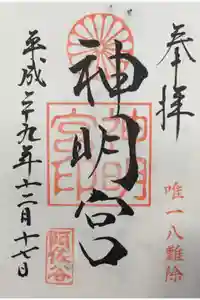 奉拝
唯一八難除
神明宮
神明宮印
平成二十九年十二月十七日
阿佐谷